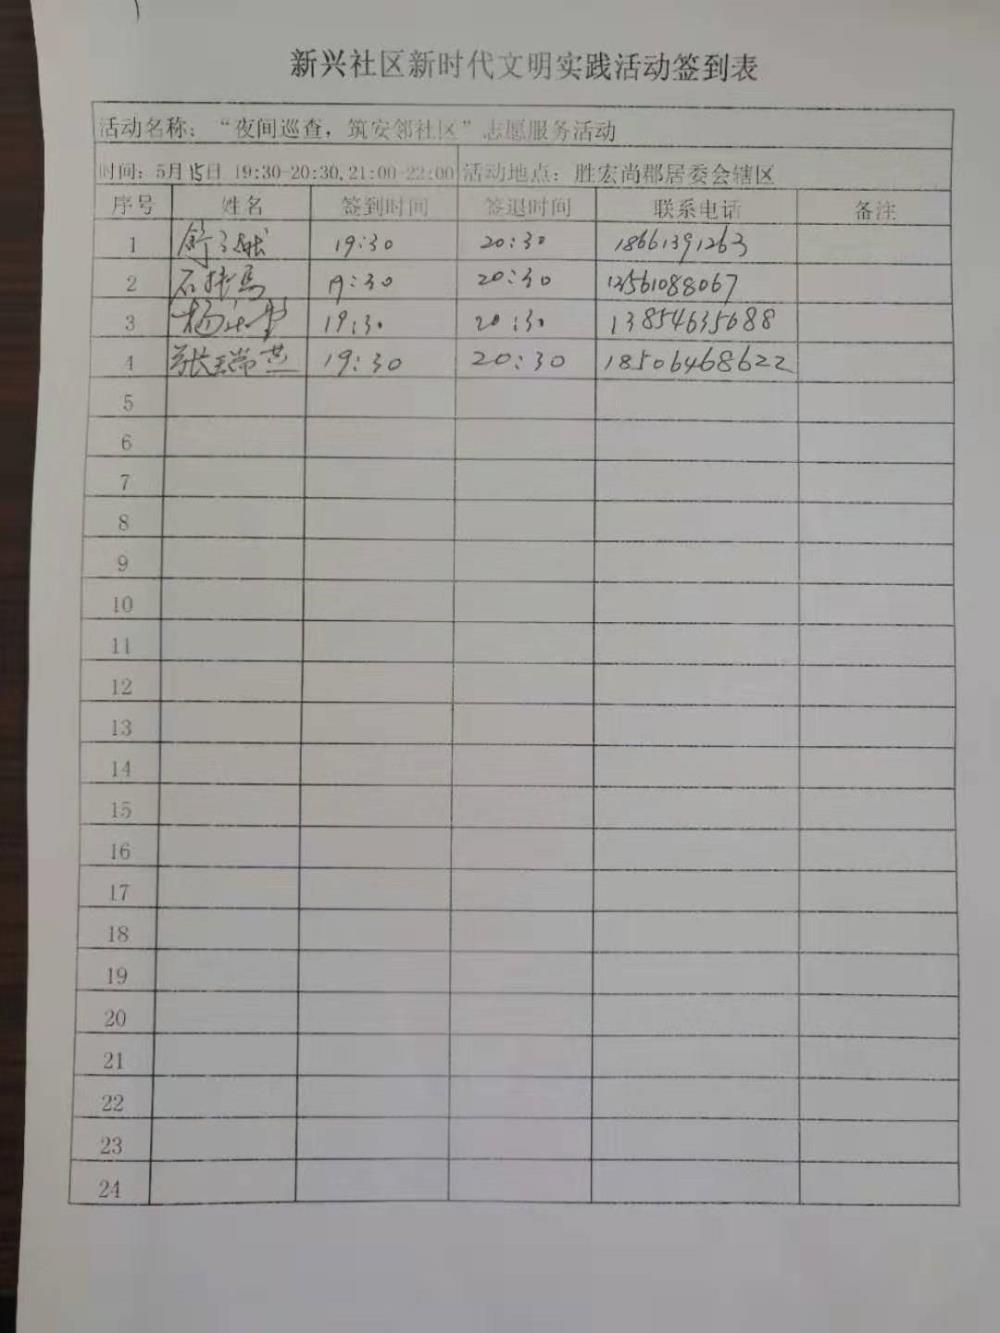 新兴社区新时代文明实践活动签到表
活动名称：“夜间巡查，筑安邻社区”志愿服务活动
时间：5月15日 19:30-20:30,21:00-22:00 活动地点：胜宏尚郡居委会辖区
序号 姓名 签到时间 签退时间 联系电话 备注
1 舒 19:30 20:30 18661391263
2 石 19:30 20:30 13561088067
3 杨 19:30 20:30 13854635688
4 张瑞芸 19:30 20:30 18506468622
5
6
7
8
9
10
11
12
13
14
15
16
17
18
19
20
21
22
23
24